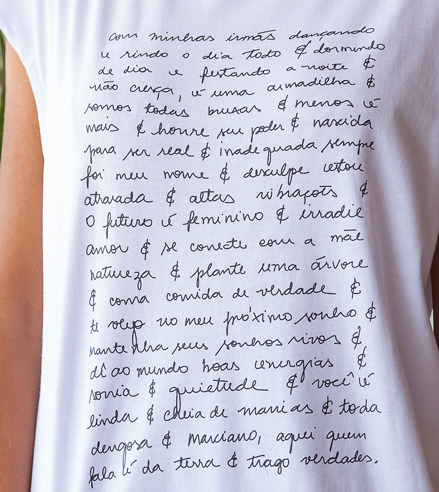 com minhas irmãs dançando
e rindo o dia todo & dormindo
de dia e festando a noite &
não cresça, é uma armadilha &
somos todas bruxas & menos é
mais & honre seu poder & nascida
para ser real & inadequada sempre
foi meu nome & desculpe estou
atrasada & altas vibrações &
o futuro é feminino & irradie
amor & se conecte com a mãe
natureza & plante uma árvore
& coma comida de verdade &
te vejo no meu próximo sonho &
mantenha seus sonhos vivos &
dê ao mundo boas energias &
sorria & quietude & você é
linda & cheia de manias & toda
dengosa & marciano, aqui quem
fala é da terra & trago verdades.